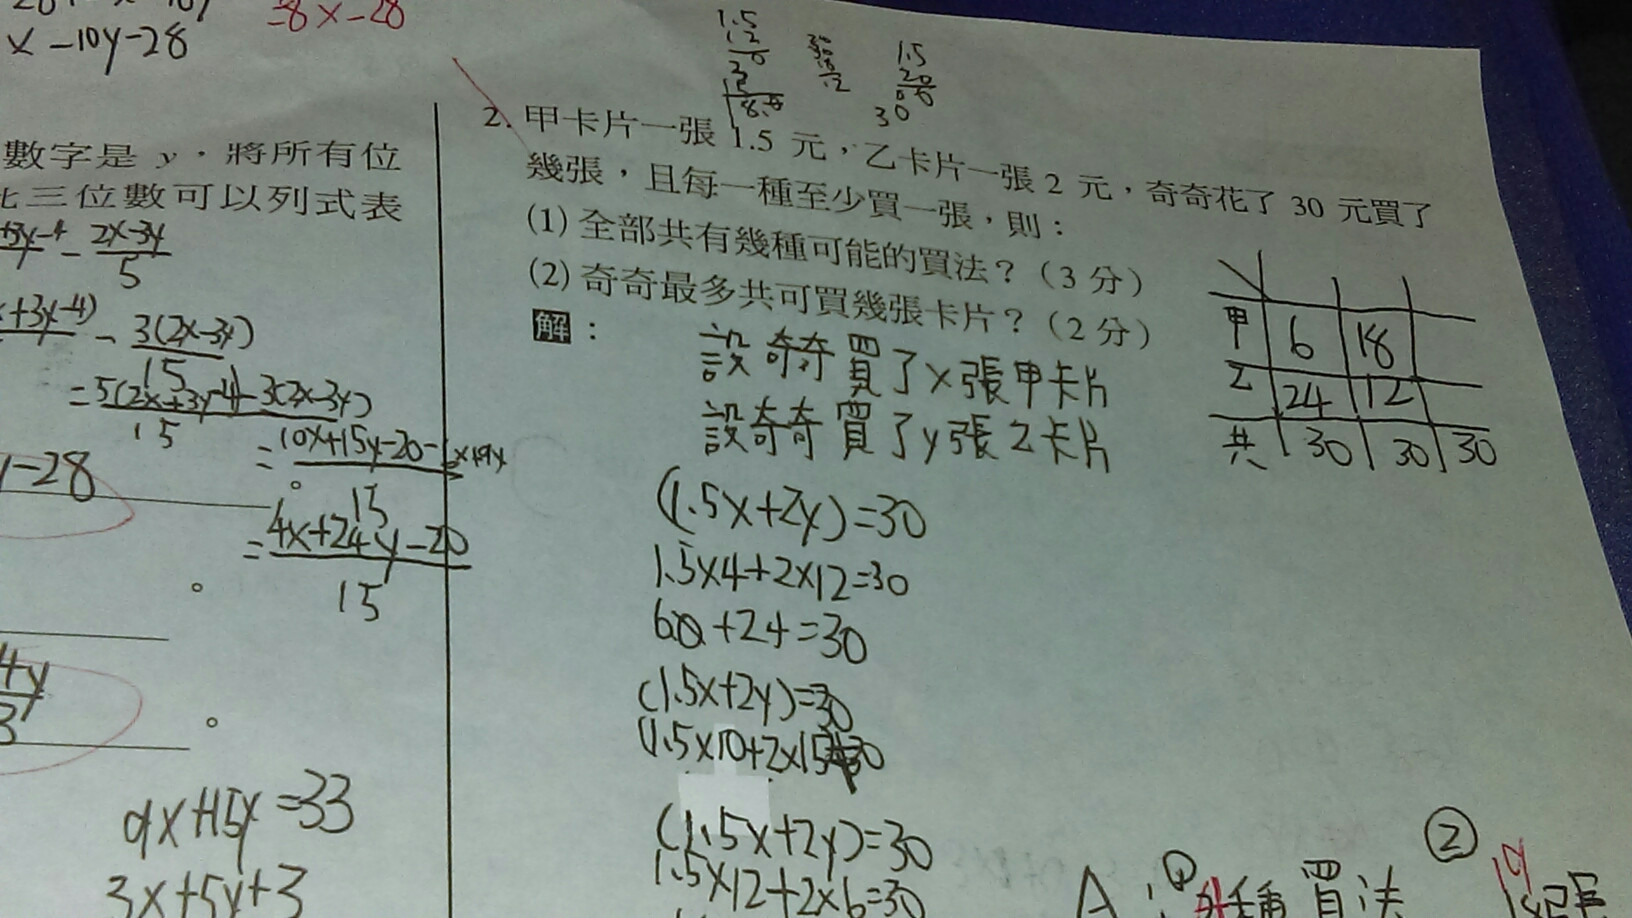 x - 10y - 28
-8x - 28
數字是 y，將所有位
三位數可以列式表
2x-3y
5
3(2x-3y)
15
= 5(2x+3y-4)-3(2x-3y)
15
= 10x+15y-20-
15
= 4x+24y-20
15
-28
4y
3
9x+15y=33
3x+5y+3
1.5
1.5
20
30
2. 甲卡片一張 1.5 元，乙卡片一張 2 元，奇奇花了 30 元買了
幾張，且每一種至少買一張，則：
(1) 全部共有幾種可能的買法？（3 分）
(2) 奇奇最多共可買幾張卡片？（2 分）
解：
設奇奇買了x張甲卡片
設奇奇買了y張乙卡片
(1.5x+2y)=30
1.5x4+2x12=30
+24=30
(1.5x+2y)=30
(1.5x10+2x15
(1.5x+2y)=30
1.5x12+2x6=30
甲 6 18
乙 24 12
共 30 30 30
A：① 種買法
② 張